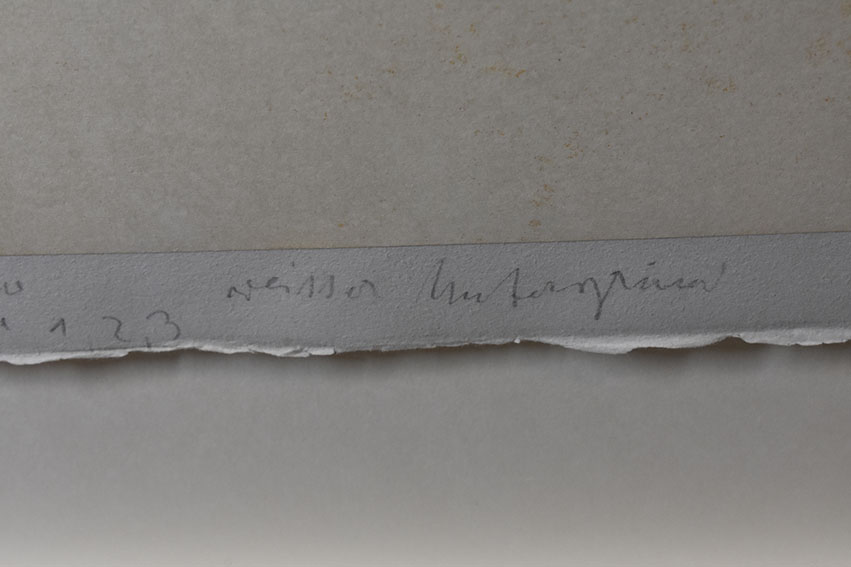 weisser Untergrund
1, 2, 3